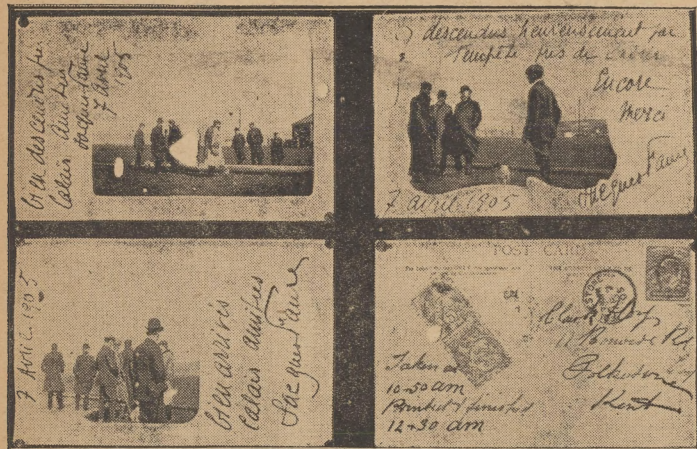 bien descendus près
Calais amitiés
Jacques Faure
7 avril
1905
descendus heureusement par
Tempête près de Calais
Encore
merci
7 avril 1905
Jacques Faure
7 Avril. 1905
bien arrivés
Calais amitiés
Jacques Faure
POST CARD
Taken at
10-50 am
Printed & finished
12-30 am
Folkestone
Kent